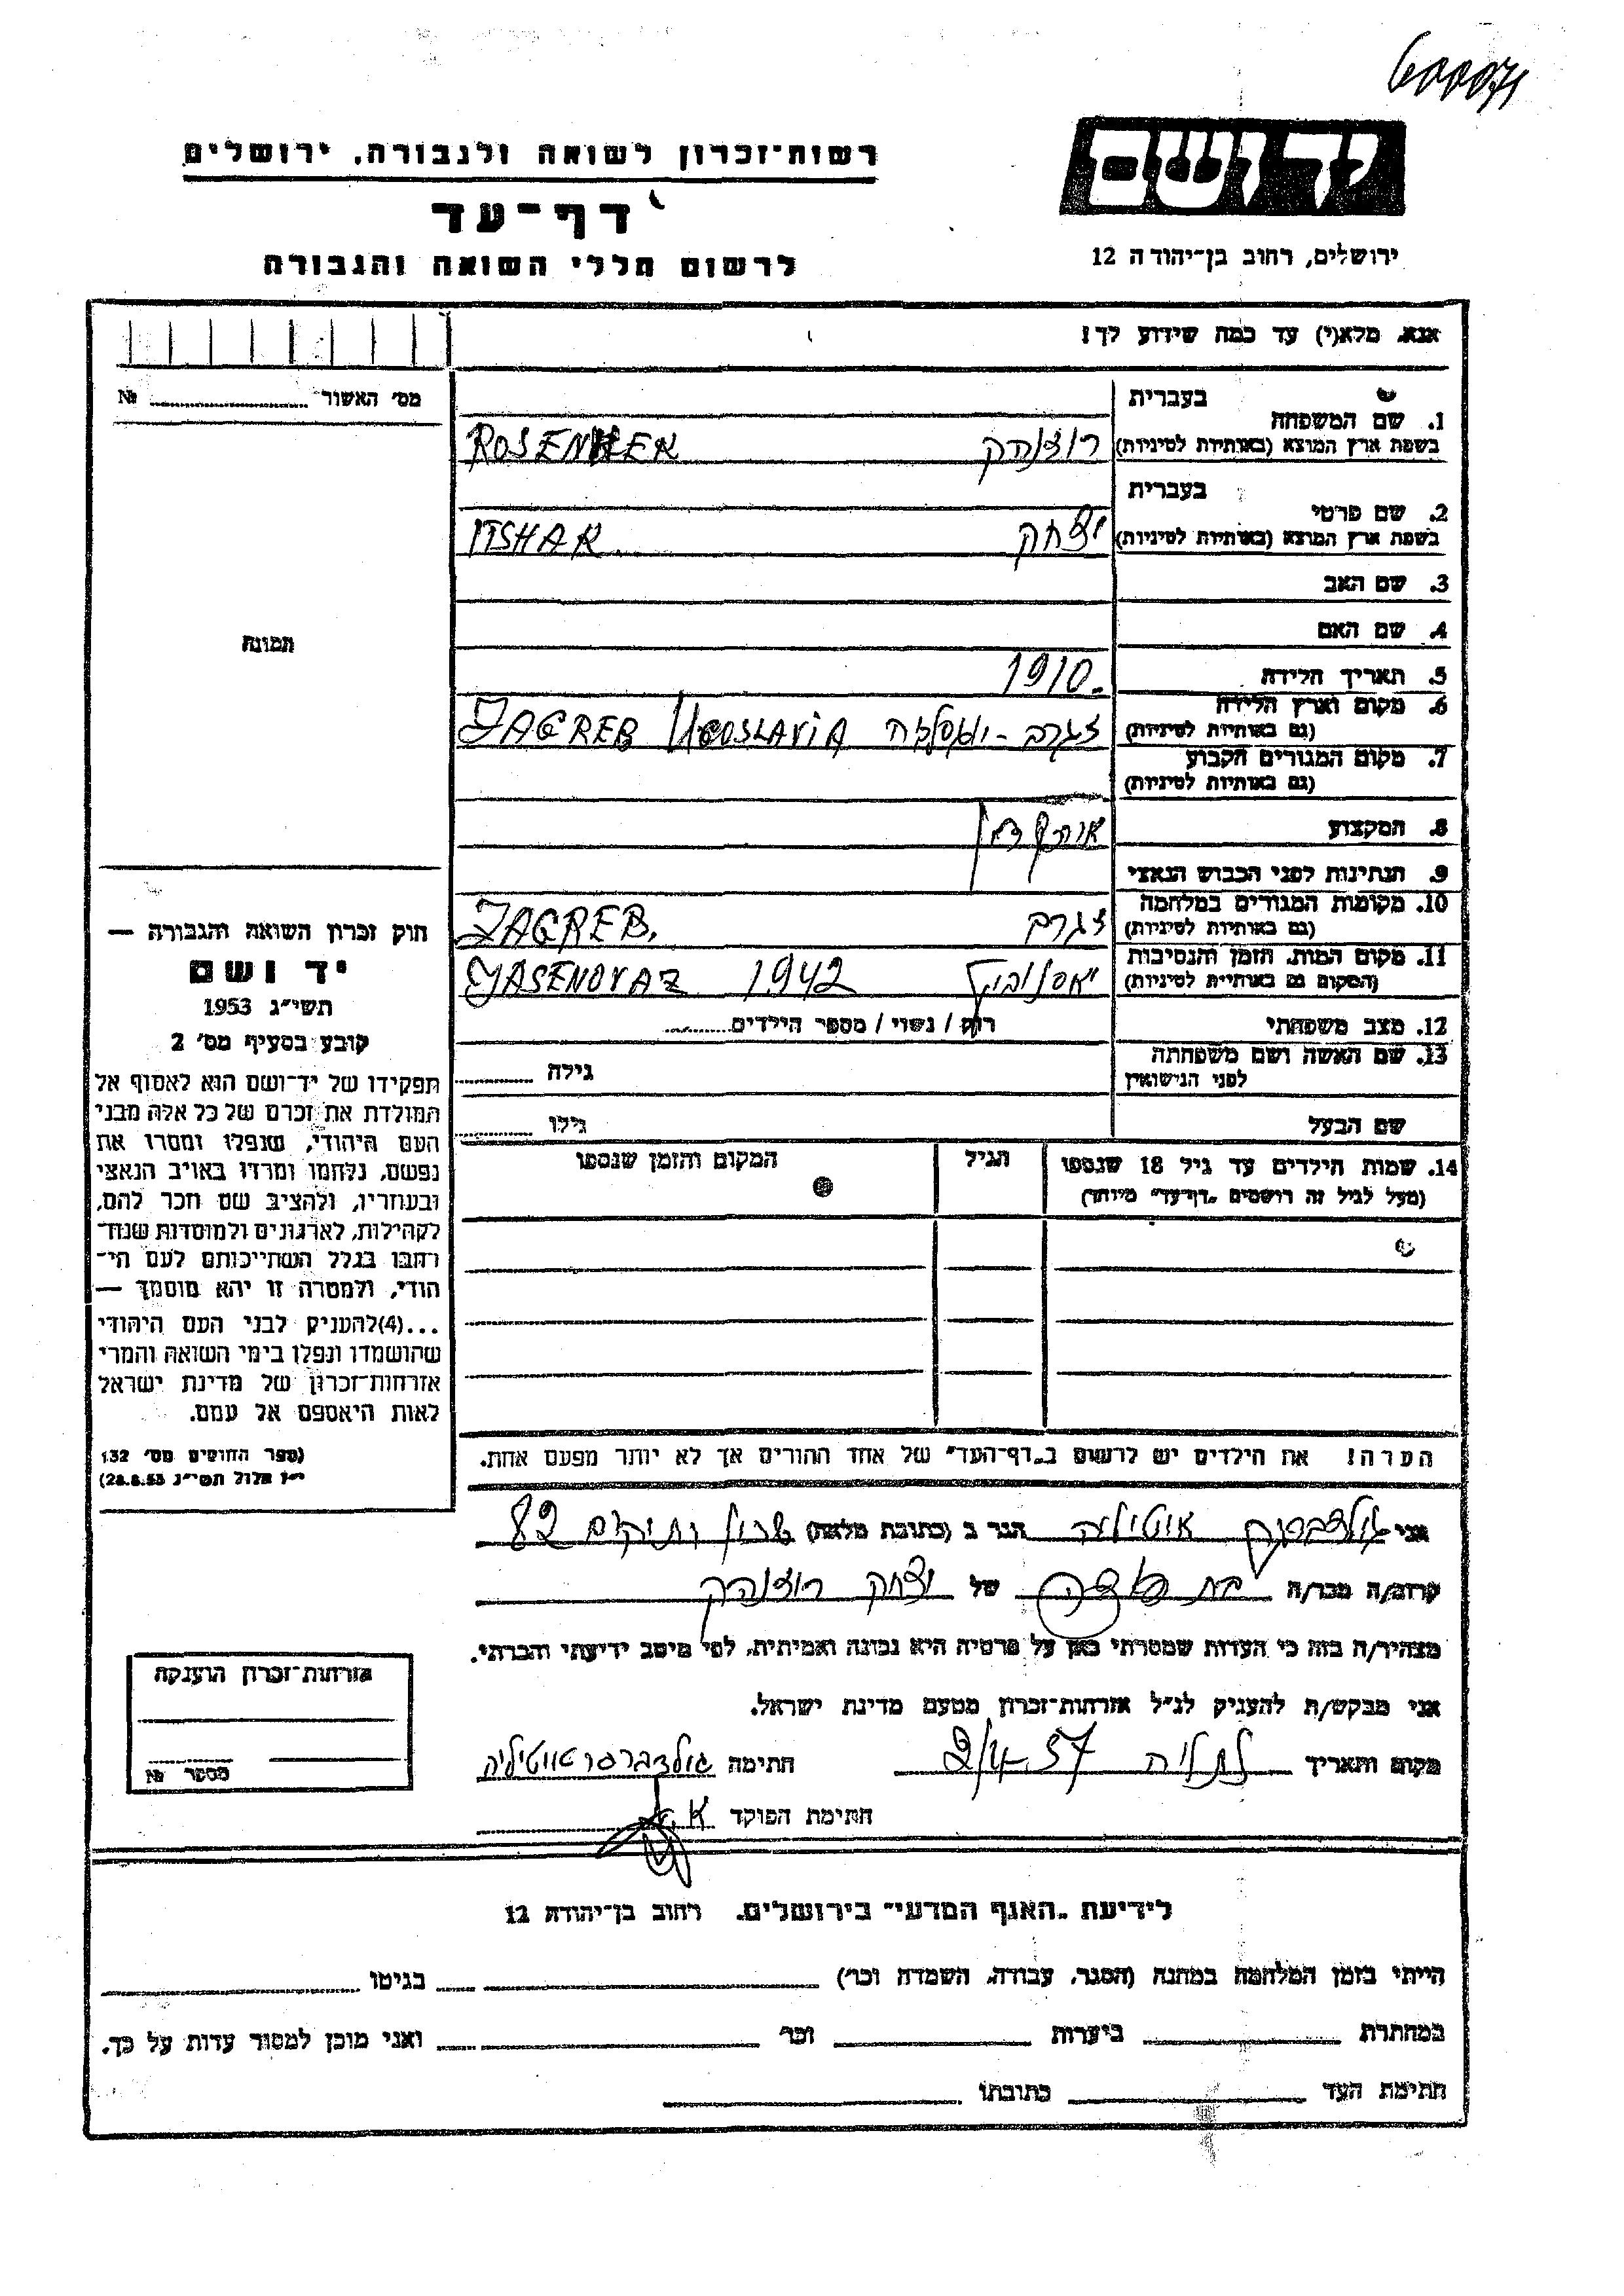 600071
יד ושם
ירושלים, רחוב בן-יהודה 12
רשות-זכרון לשואה ולגבורה, ירושלים
דף-עד
לרשום חללי השואה והגבורה
אנא, מלא(י) עד כמה שידוע לך!
מס' האשור № 
בעברית
1. שם המשפחה
בשפת ארץ המוצא (באותיות לטיניות) רוזנהק ROSENHEK
בעברית
2. שם פרטי
בשפת ארץ המוצא (באותיות לטיניות) יצחק ITSHAK
3. שם האב
4. שם האם
5. תאריך הלידה 1910.
6. מקום וארץ הלידה
(גם באותיות לטיניות) זגרב - יוגוסלביה ZAGREB Ugoslavia
7. מקום המגורים הקבוע
(גם באותיות לטיניות)
8. המקצוע עורך דין
9. הנתינות לפני הכבוש הנאצי
10. מקומות המגורים במלחמה
(גם באותיות לטיניות) זגרב ZAGREB.
11. מקום המות, הזמן והנסיבות
(המקום גם באותיות לטיניות) 1942 JASENOVAZ
12. מצב משפחתי רוק / נשוי / מספר הילדים
13. שם האשה ושם משפחתה
לפני הנישואין גילה
שם הבעל גילו
14. שמות הילדים עד גיל 18 שנספו הגיל המקום והזמן שנספו
(מעל לגיל זה רושמים "דף-עד" מיוחד)
הערה! את הילדים יש לרשום ב"דף-העד" של אחד ההורים אך לא יותר מפעם אחת.
תמונה
חוק זכרון השואה והגבורה —
יד ושם
תשי"ג 1953
קובע בסעיף מס' 2
תפקידו של יד-ושם הוא לאסוף אל
המולדת את זכרם של כל אלה מבני
העם היהודי, שנפלו ומסרו את
נפשם, נלחמו ומרדו באויב הנאצי
ובעוזריו, ולהציב שם וזכר להם,
לקהילות, לארגונים ולמוסדות שנח-
רבו בגלל השתייכותם לעם הי-
הודי, ולמטרה זו יהא מוסמך —
...(4)להעניק לבני העם היהודי
שהושמדו ונפלו בימי השואה והמרי
אזרחות-זכרון של מדינת ישראל
לאות היאספם אל עמם.
(ספר החוקים מס' 132
י"ז אלול תשי"ג 28.8.53)
אני אוטיליה הגר ב (כתובת מלאה) ותיקים 82
קרוב/ה מכר/ה בת דודה של יצחק רוזנהק
מצהיר/ה בזה כי העדות שמסרתי כאן על פרטיה היא נכונה ואמיתית, לפי מיטב ידיעתי והכרתי.
אני מבקש/ת להעניק לנ"ל אזרחות-זכרון מטעם מדינת ישראל.
מקום ותאריך נתניה 2/4.57 חתימה
חתימת הפוקד
אזרחות-זכרון הוענקה
מספר №
לידיעת "האגף המדעי" בירושלים, רחוב בן-יהודה 12
הייתי בזמן המלחמה במחנה (הסגר, עבודה, השמדה וכו') בגיטו
במחתרת ביערות וכו' ואני מוכן למסור עדות על כך.
חתימת העד כתובתו